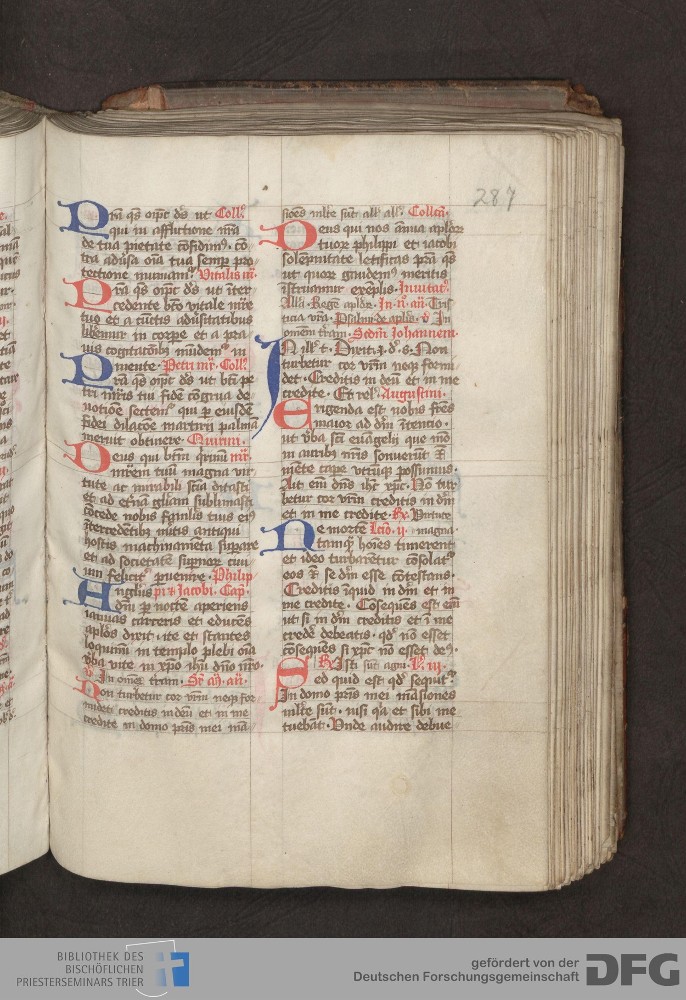 287
Pr̄a q̄s om̄ps ds̄ ut Coll̄
qui in afflictione nr̄a
de tua pietate cōfidimꝰ · cō
tra adūsa oīa tua semꝑ pro
tectione muniam̄ · Vitalis m̄r
Pr̄a q̄s om̄ps ds̄ ut īter
cedente bt̄o vitale mr̄e
tuo et a cūctis adūsitatibus
liberemur in corpe et a pra
uis cogitacōibꝫ mūdemꝰ in
mente · Petri mr̄ · Coll̄
Pr̄a q̄s om̄ps ds̄ ut bt̄i pe
tri mr̄is tui fidē cōgrua de
uotiōe sectemꝰ qui ꝑ eiusdē
fidei dilacōe martirij palmā
meruit obtinere · Quirini ·
Deus qui btm̄ qrinū mr̄
mr̄em tuū magna vir
tute ac mirabili sciā ditasti
et ad et̄nā gliam sublimasti
cōcede nobis famlis tuis eiꝰ
īntercedētibꝫ mitis antiqui
hostis machinamēta supare
et ad societatē supnoꝝ ciui
um felicitꝰ puenire · Philip
Anglus pi ⁊ Jacobi · Cap̄ ·
dm̄ ꝑ noctē aperiens
ianuas carceris et educēs
apl̄os dixit · ite et stantes
loquimī in templo plebi oīa
vb̄a vite in xpo ihu dn̄o nr̄o ·
V̄ In omnē terram ·
Non turbetur cor vrm̄ neqꝫ for
midet creditis in deū et in me
credite in domo pr̄is mei mā
sioēs ml̄te sūt all̄ all̄ · Collcā ·
Deus qui nos ānua aplōr
tuoꝝ philippi et iacobi
solēpnitate letificas pr̄a q̄s
ut quoꝝ gaudemꝰ meritis
īstruamur exēplis · Inuitat̄
All̄a · Rege aplōꝝ · In · n̄ · an̄ · Tris
ticia vr̄a · Psalmi de aplis · V̄ In
omnem tr̄am · Scdm̄ Iohannem ·
IN ill̄ · t̄ · Dixit · i · d · s · Non
turbetur cor vrm̄ neqꝫ formi
det · Creditis in deū et in me
credite · Et rel̄ · Augustini ·
Erigenda est nobis frēs
maior ad dm̄ ītencio ·
ut vb̄a sc̄i euāgelij que mō
in auribꝫ nr̄is sonuerūt ī
mēte cape vtcūqꝫ possimus ·
Ait eni dn̄s ihc xpc · Nō tur
betur cor vrm̄ creditis in dm̄
et in me credite · R̄ · Virtute
Ne morte Lc̄io · ij · magna ·
tamqꝫ hoīes timerent
et ideo turbarētur cōsolatꝰ
eos ī se dm̄ esse cōtestans ·
Creditis inquid in dm̄ et in
me credite · Cōsequēs est eni
ut si in dm̄ creditis et ī me
credē debeatis · qd̄ nō esset
cōsequēs si xpc nō esset deꝰ ·
R̄ · Isti sūt agni · L̄ · iij ·
Sed quid est qd̄ sequitꝰ
In domo pr̄is mei māsiones
ml̄te sūt · nisi qꝛ et sibi me
tuebāt · Vnde audire debue
BIBLIOTHEK DES
BISCHÖFLICHEN
PRIESTERSEMINARS TRIER
gefördert von der
Deutschen Forschungsgemeinschaft
DFG